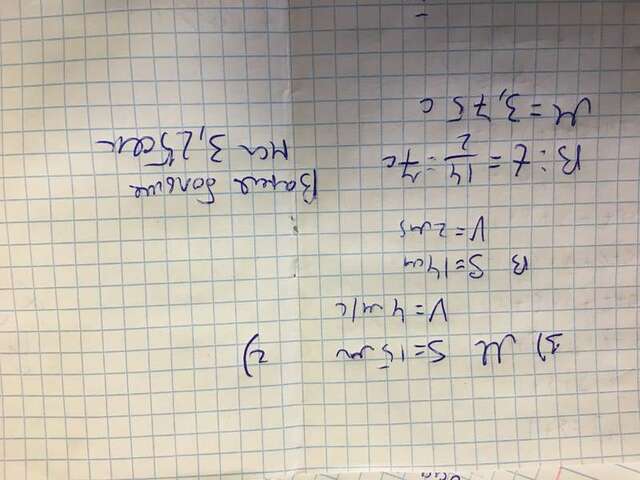 3) М S=15 м
V=4 м/с
В S=14 м
V=2 м/с
В: t = 14/2 = 7 с
М = 3,75 с
2)
Ваня больше
на 3,25 сек